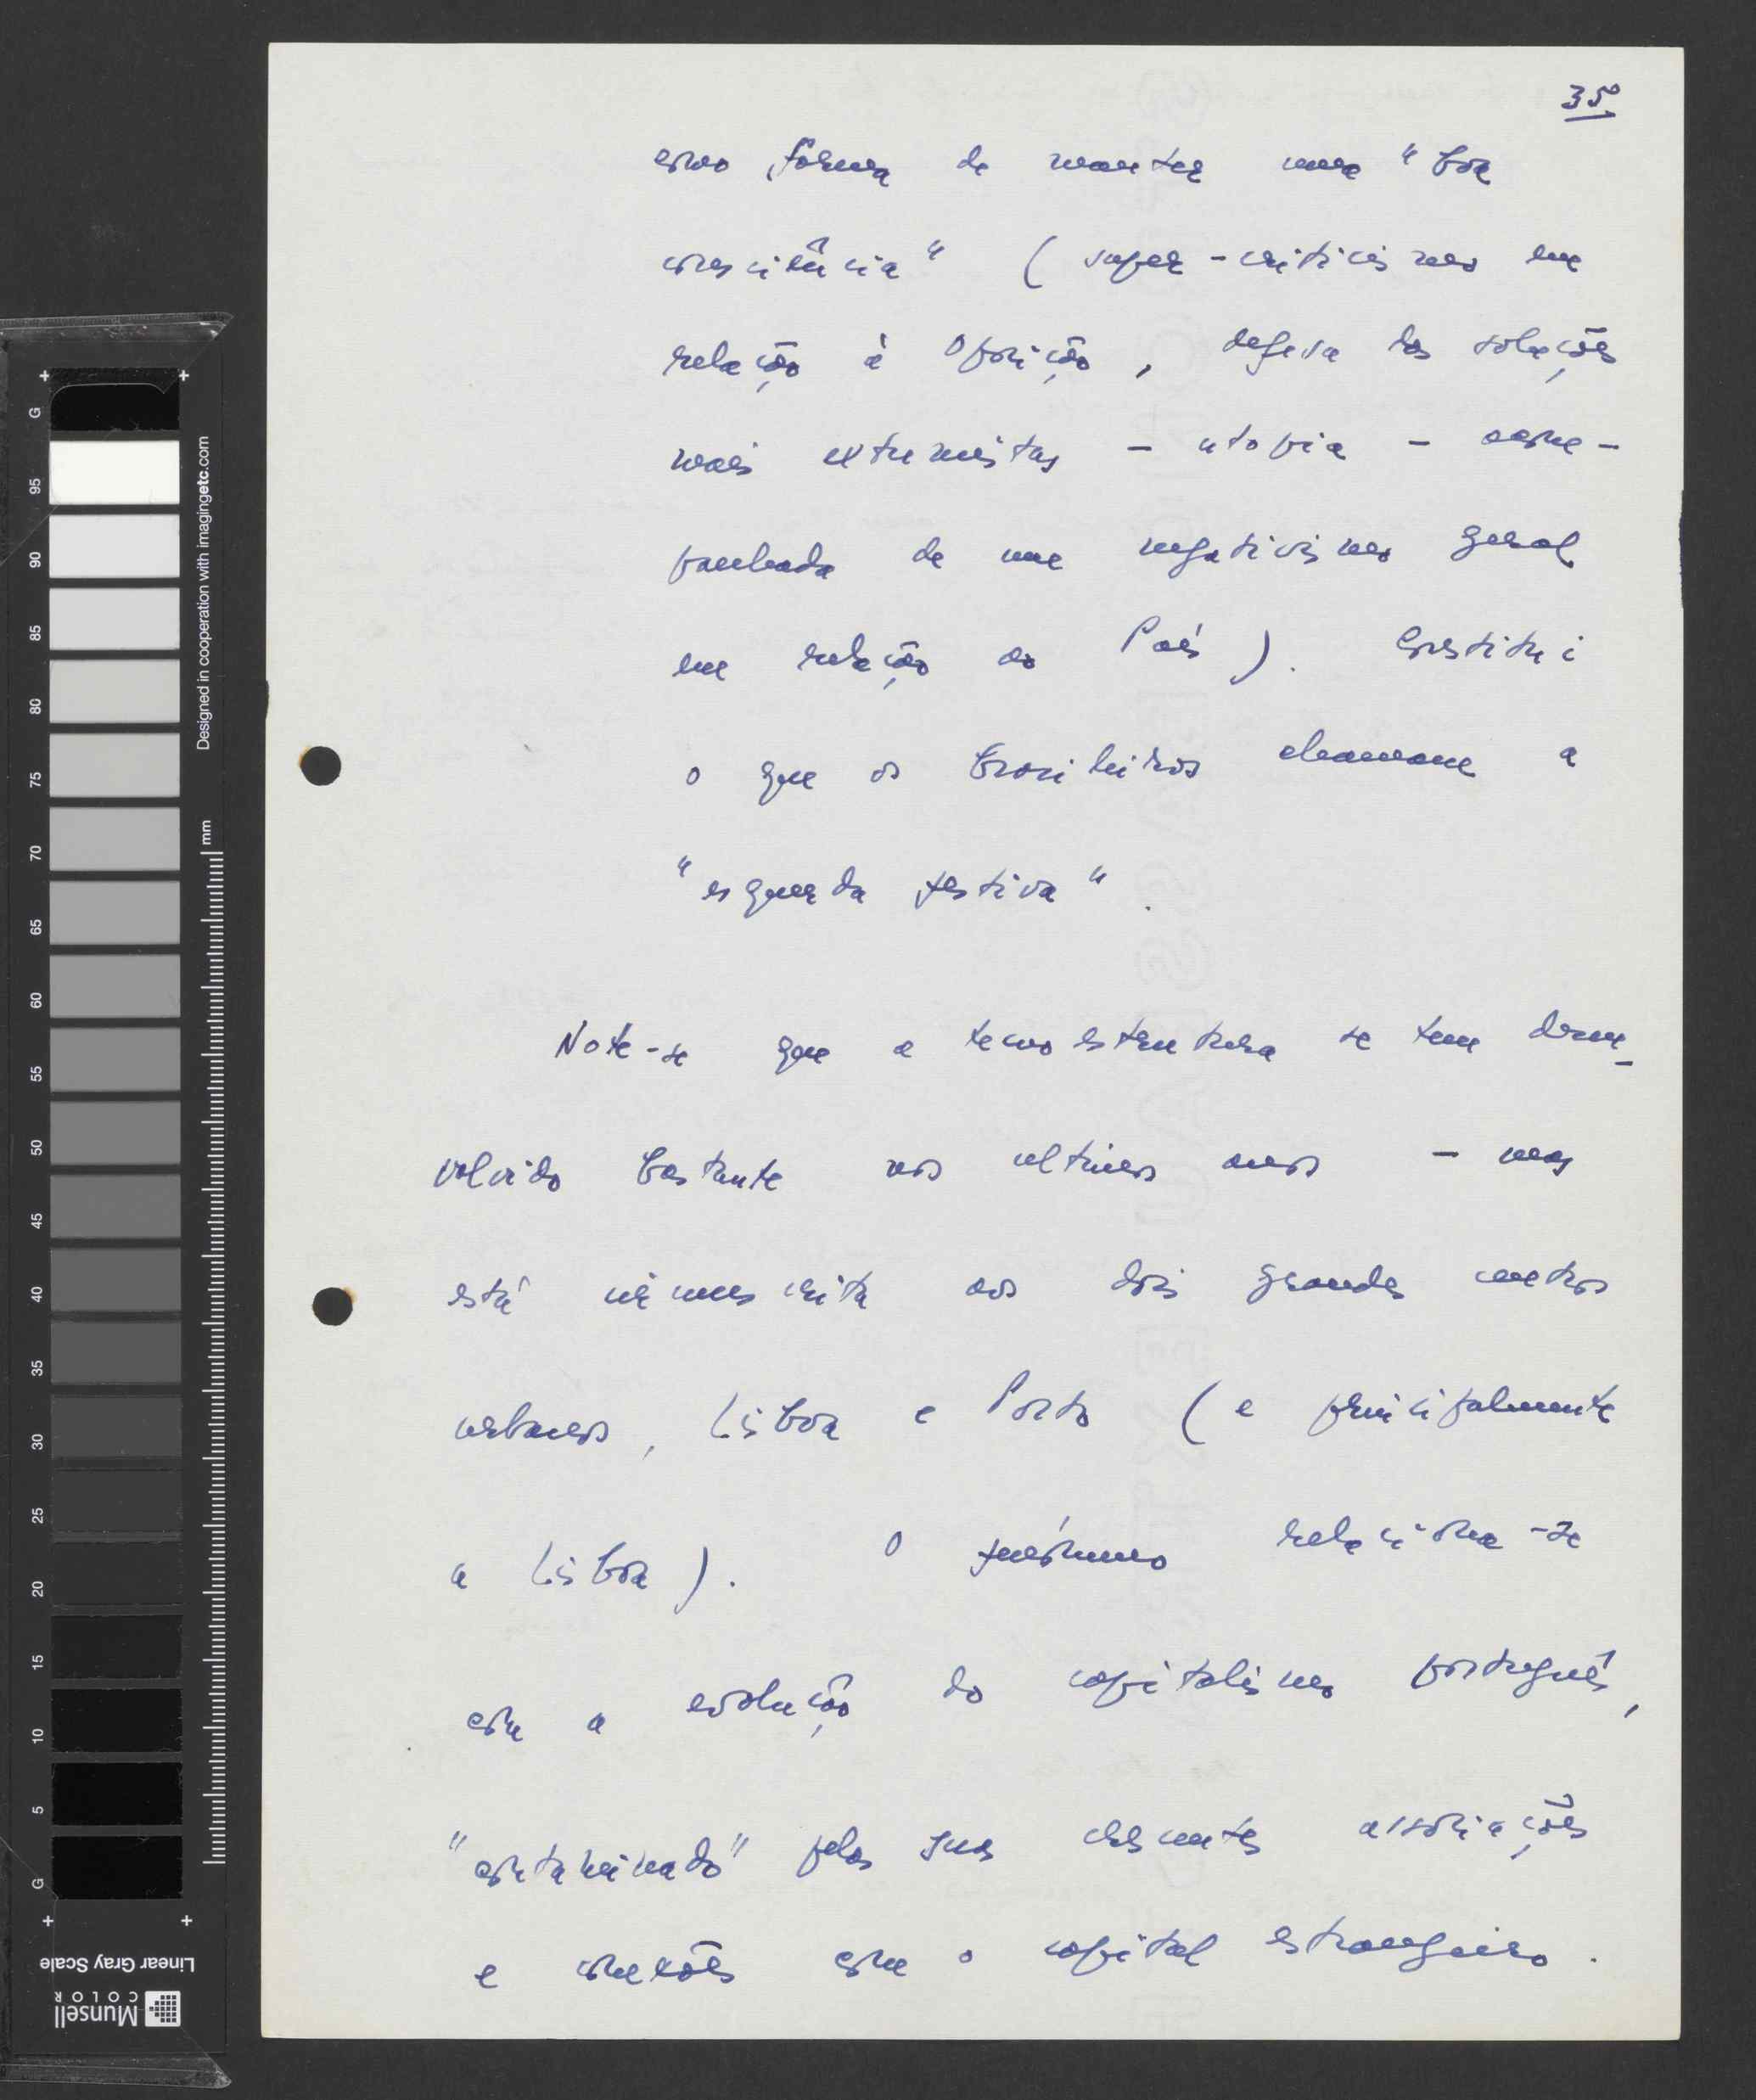 35º
como forma de manter uma "boa
consciência" (super-criticismo em
relação à Oposição, defesa das soluções
mais extremistas - utopia - acom-
panhada de um negativismo geral
em relação ao País). Constitui
o que os brasileiros chamam a
"esquerda festiva".
Note-se que a tecnoestrutura se tem desen-
volvido bastante nos ultimos anos - mas
está circunscrita aos dois grandes centros
urbanos, Lisboa e Porto (e principalmente
a Lisboa). O fenómeno relaciona-se
com a evolução do capitalismo português,
"contaminado" pelas suas crescentes associações
e conexões com o capital estrangeiro.
G
95
90
85
80
75
70
65
60
55
50
45
40
35
30
25
20
15
10
5
G
mm
Designed in cooperation with imagingetc.com
Linear Gray Scale
Munsell
COLOR